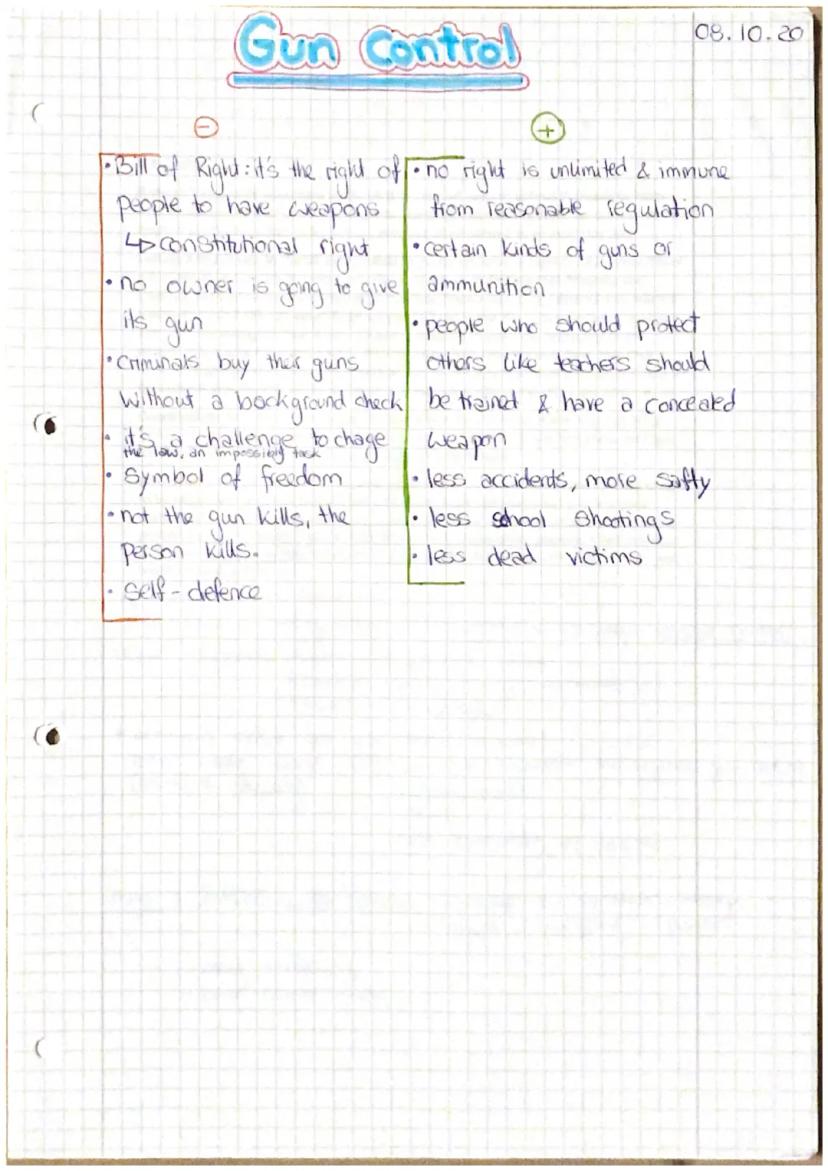 Gun Control
08.10.20
-
• Bill of Right: it's the right of
people to have weapons
↳ constitutional right
• no owner is going to give
its gun
• Criminals buy their guns
without a background check
• it's a challenge to chage
the law, an impossibly task
• Symbol of freedom
• not the gun kills, the
person kills.
• Self-defence
+
• no right is unlimited & immune
from reasonable regulation
• certain kinds of guns or
ammunition
• people who should protect
others like teachers should
be trained & have a concealed
weapon
• less accidents, more safty
• less school shootings
• less dead victims